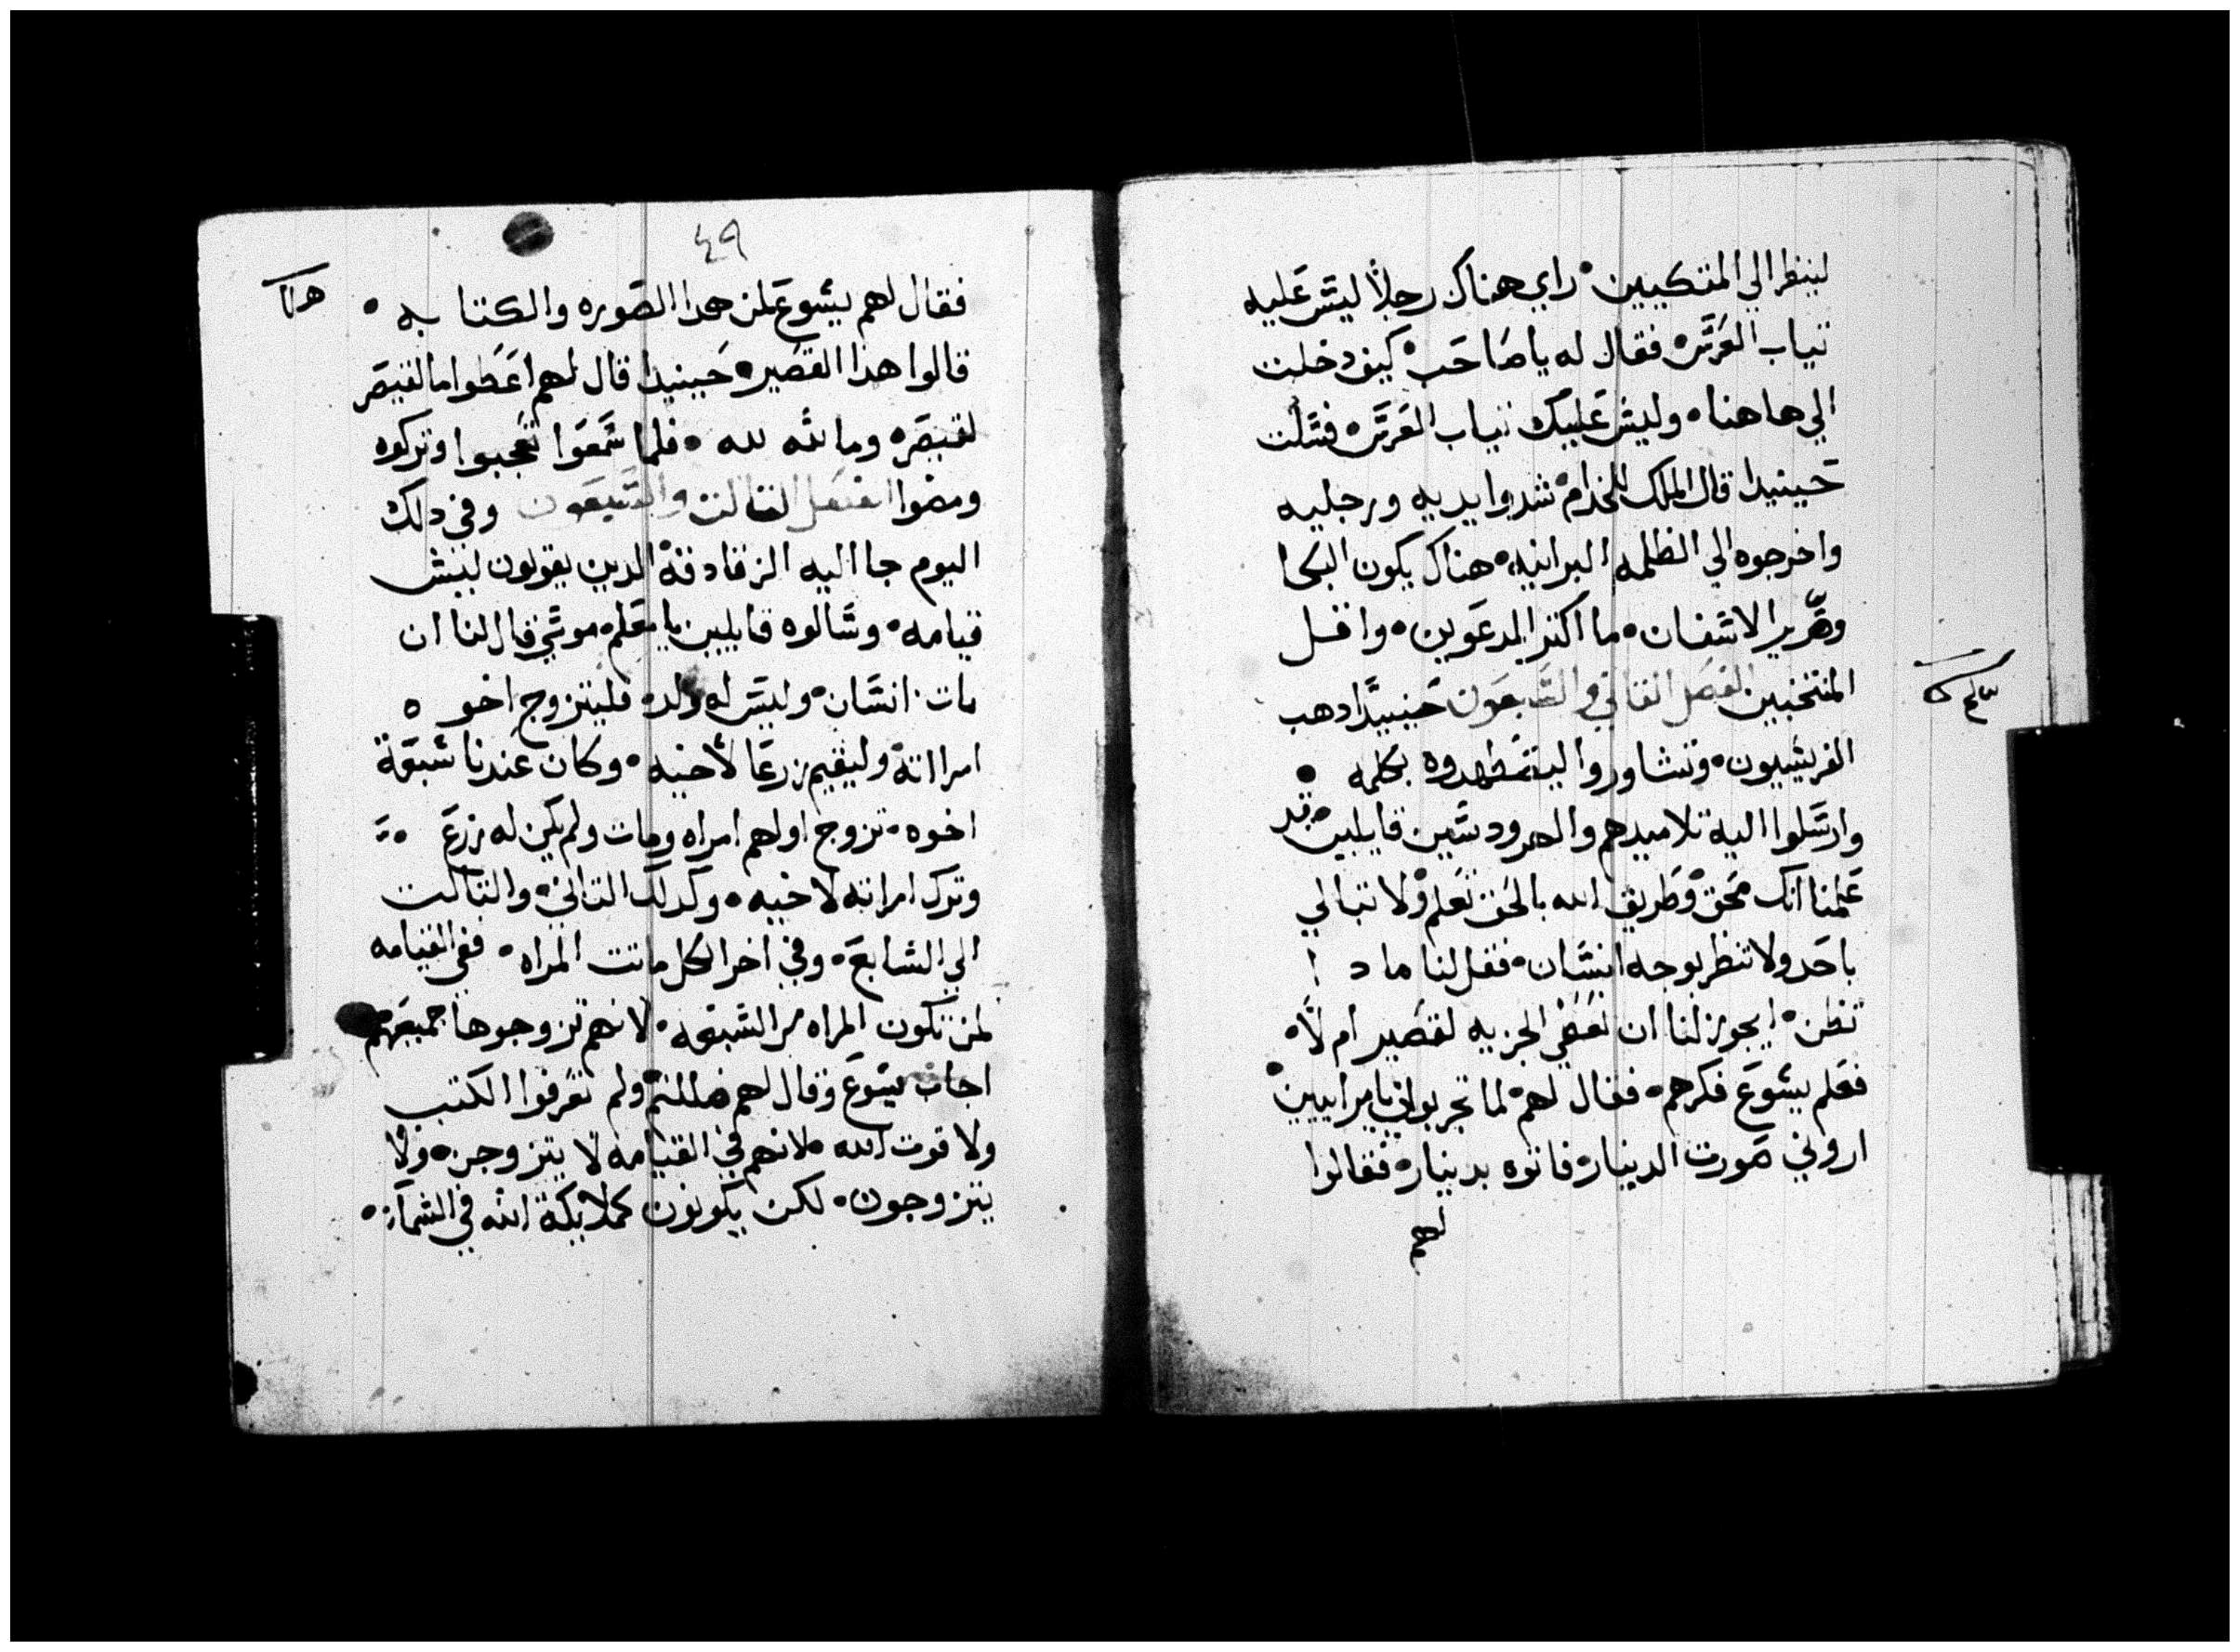 لينظر الي المتكيين۰ راي هناك رجلاً ليس عليه
تياب العرس۰ فقال له يا صاحب۰ كيف دخلت
الي هاهنا۰ وليس عليك تياب العرس۰ فسكت
حينيدا قال الملك للخدام۰ شدوا يديه ورجليه
واخرجوه الي الظلمه البرانيه۰ هناك يكون البكا
وصرير الاسنان۰ ما اكتر المدعوين۰ واقل
المنتخبين الفصل التاني والسبعون حينيداً دهب
الفريسيون۰ وتشاوروا ليصطهدوه بكلمه ۰
وارسلوا اليه تلاميدهم والهرودسين قايلين۰ قد
علمنا انك محق۰ وطريق الله بالحق تعلم۰ ولا تبالي
باحد ولا تنظر بوجه انسان۰ فقل لنا ماد ا
تظن۰ ايجوز لنا ان نعطي الجزيه لقصير ام لا۰
فعلم يسوع فكرهم۰ فقال لهم۰ لما تجربوني يا مراييين۰
اروني صورت الدينار۰ فاتوه بدينار۰ فقالوا
لهم
٤٩
فقال لهم يسوع لمن هدا الصوره والكتابه ۰
قالوا هدا القصير۰ حينيدا قال لهم اعطوا ما لقيصر
لقيصر۰ وما لله لله ۰ فلما سمعوا تعجبوا وتركوه
ومضوا الفصل التالت والسبعون وفي دلك
اليوم جا اليه الزنادقة۰ الدين يقولون ليش
قيامه۰ وسالوه قايلين يا معلم۰ موسي قال لنا ان
مات انسان۰ وليس له ولد۰ فليتزوج اخوه
امراته۰ وليقيم زرعا لأخيه۰ وكان عندنا سبعة
اخوه۰ تزوج اولهم امراه ومات ولم يكن له زرع
وترك امراته لاخيه۰ وكدلك التاني۰ والتالت
الي السابع۰ وفي اخر الكل ماتت المراه۰ ففي القيامه
لمن تكون المراه من السبعه۰ لانهم تزوجوها جميعهم
اجاب يسوع وقال لهم ضللتم۰ ولم تعرفوا الكتب
ولا قوت الله۰ لانهم في القيامه لا يتزوجن۰ ولا
يتزوجون۰ لكن يكونون كملايكة الله في السمآ۰